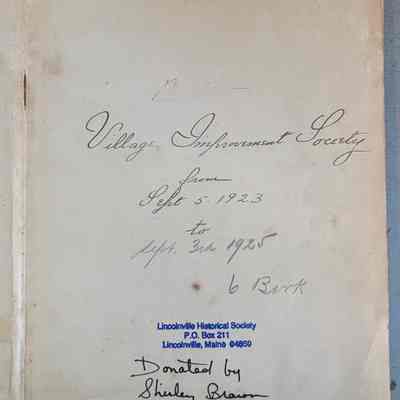 Village Improvement Society
from
Sept 5 1923
to
Sept. 3rd 1925
6 Book
Lincolnville Historical Society
P.O. Box 211
Lincolnville, Maine 04850
Donated by
Shirley Brawn